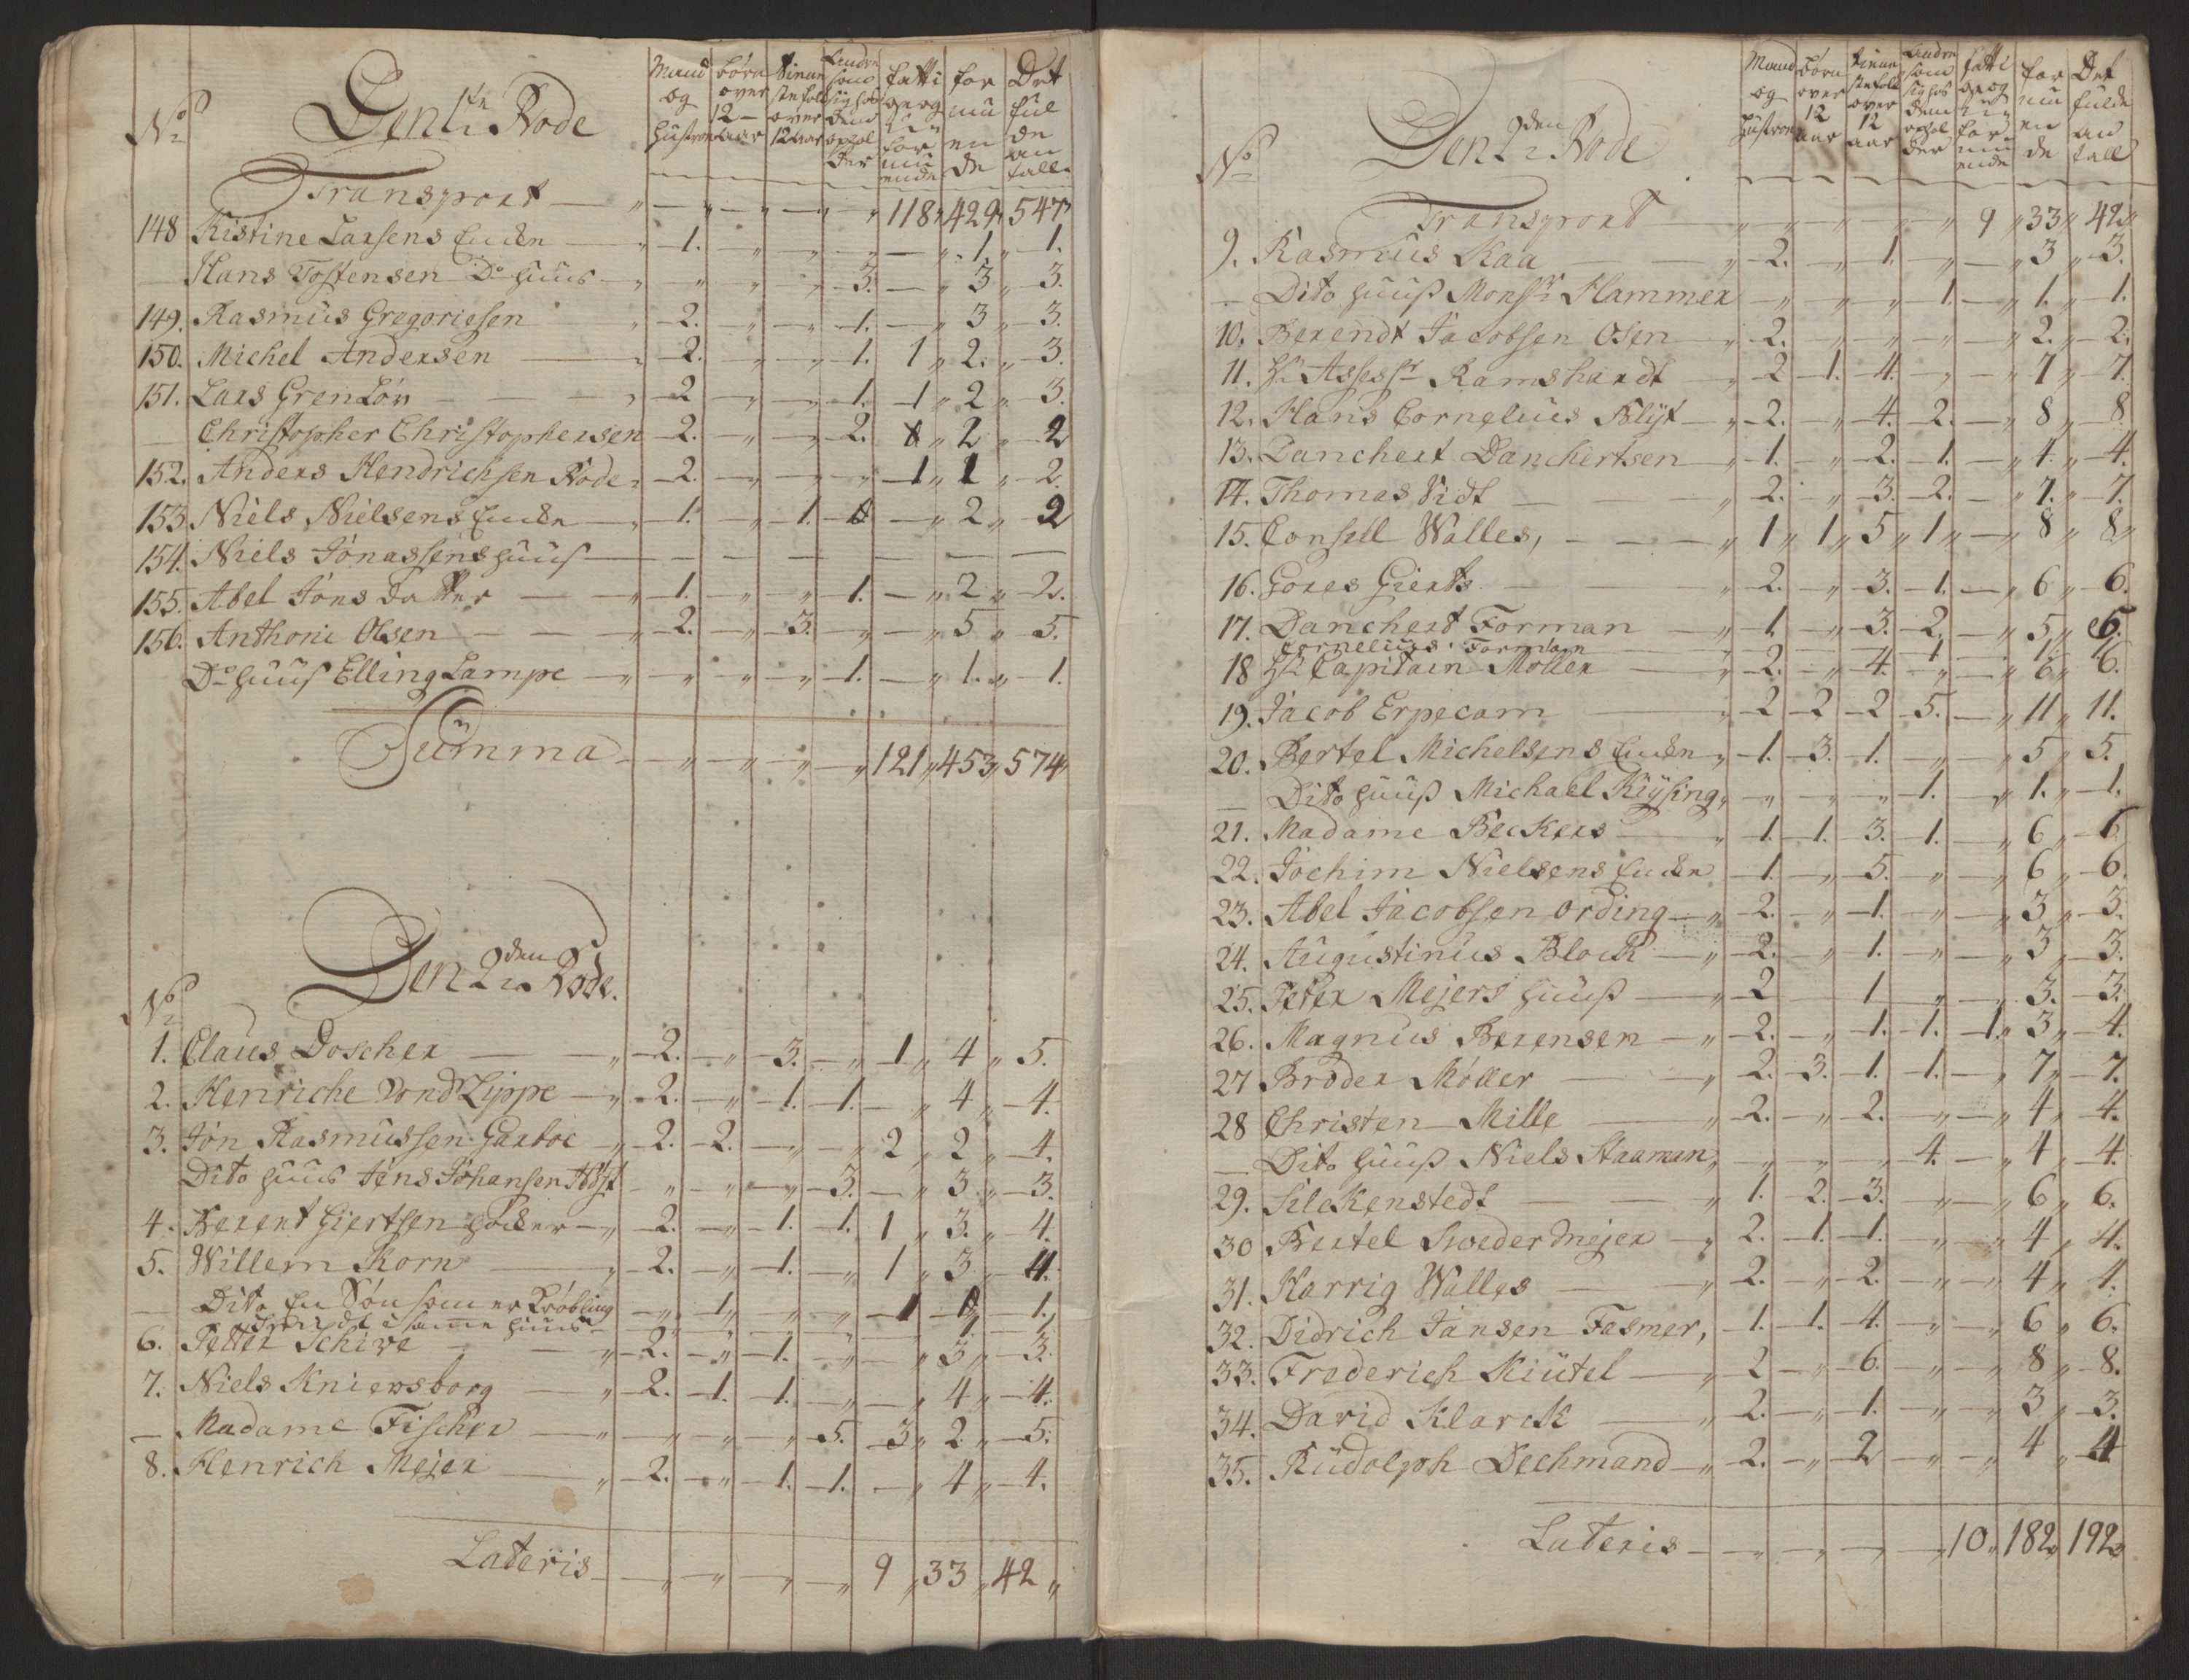 No Den 1te Rode Mand og Hustroe Børn over 12 aar Tienne stefolk over 12 aar Andre som sig hos dem opholder fatti ge og u for mu ende for mu en de Det ful de an tall
Transport — „ — „ — „ — „ — „ 118 „ 429 „ 547 „
148 Kistine Larsens Encke — „ 1. „ „ — „ 1 „ 1.
— Hans Tostensen Do Huus — „ „ „ „ 3. — „ 3 „ 3.
149. Rasmus Gregoriesen „ 2. „ „ 1. — „ 3 „ 3.
150. Michel Andersen — „ 2. „ „ 1. 1 „ 2. „ 3.
151. Lars Grenløv — „ 2 „ „ 1. 1 „ 2 „ 3.
— Christopher Christophersen 2. „ „ 2. „ 2 „ 2
152. Anders Hendrichsen Rode „ 2. „ „ „ 1 „ 1 „ 2.
153 Niels Nielsens Encke — „ 1. „ 1. — „ 2 „ 2
154. Niels Jonassens Huus — — — — — — — —
155. Abel Jons datter — „ 1. „ „ 1. — „ 2 „ 2.
156. Anthoni Olsen — „ 2. „ 3. „ — „ 5 „ 5.
Do Huus Elling Lampe — „ „ „ „ 1. — „ 1. „ 1.
Summa — „ „ „ „ 121 „ 453 „ 574 „
No Den 2den Rode.
1. Claus Doscher — „ 2. „ 3. „ 1 „ 4 „ 5.
2. Henriche Vond Lippe — „ 2. „ 1. 1. — „ 4 „ 4.
3. Jøn Rasmussen Garboe „ 2. 2. „ „ 2 „ 2 „ 4.
Dito Huus Jens Johansen Høst — „ „ „ 3. — „ 3 „ 3.
4. Berent Giertsen Høcker — „ 2. „ 1. 1. 1 „ 3. „ 4.
5. Willem Korn — „ 2. „ 1. „ 1 „ 3 „ 4.
— Dito En Søn som er Krøbling — „ 1 „ „ 1 „ 1.
i samme Huus
6. Petter Schive — „ 2. „ 1. „ — „ 3 „ 3.
7. Niels Kniewsborg — „ 2. 1. 1. „ „ 4 „ 4.
— Madame Fischer — „ „ „ „ 5. 3 „ 2 „ 5.
8. Henrich Mejer — „ 2. „ 1. 1. — „ 4 „ 4.
Lateris — „ „ „ „ 9 „ 33 „ 42 „
No Den 2den Rode Mand og Hustroe Børn over 12 aar Tienne stefolk over 12 aar Andre som sig hos dem opholder fatti ge og u for mu ende for mu en de Det fulde an tall
Transport — „ „ „ „ 9 „ 33 „ 42 „
9. Rasmus Kaa — „ 2. „ 1. „ — „ 3 „ 3.
— Dito Huuß Monsr Hammer „ „ „ 1. — „ 1. „ 1.
10. Berendt Jacobsen Osen — „ 2. „ „ „ — „ 2. „ 2.
11. Hr Assessr Ramshardt — „ 2 1. 4. „ — „ 7 „ 7.
12. Hans Cornelius Blyt — „ 2. „ 4. 2. — „ 8 „ 8.
13. Danchert Danchertsen — „ 1. „ 2. 1. — „ 4 „ 4.
14. Thomas Vidt — „ 2. „ 3. 2. — „ 7. „ 7.
15. Consul Walles, — „ 1 „ 1 „ 5 „ 1 „ — „ 8 „ 8 „
16. Gores Gierts — „ 2. „ 3. 1. — „ 6 „ 6.
17. Danchert Forman — „ 1 „ 3. 2. — „ 5 „ 6.
Cornelius Forman 1 1
18 Hr Capitain Møller — „ 2. „ 4. „ — „ 6 „ 6.
19. Jacob Erpecam — „ 2 2 2 5. — „ 11 „ 11.
20. Bertel Michelsens Encke „ 1. 3. 1. „ — „ 5 „ 5.
— Dito Huuß Michael Kiysing, „ „ „ 1. — „ 1. „ 1.
21. Madame Beckers — „ 1. 1. 3. 1. — „ 6 „ 6
22. Jochim Nielsens Encke „ 1. „ 5. „ — „ 6 „ 6.
23. Abel Jacobsen Ording — „ 2. „ 1. „ — „ 3 „ 3.
24. Augustinus Block — „ 2. „ 1. „ — „ 3 „ 3.
25. Peter Mejers Huuß — „ 2 1 „ — „ 3. „ 3.
26. Magnus Berensen — „ 2. „ 1. 1. 1. „ 3 „ 4.
27 Broder Møller — „ 2. 3. 1. 1. — „ 7 „ 7.
28 Christen Mille — „ 2. „ 2. „ — „ 4 „ 4.
— Dito Huuß Niels Staaman, „ „ „ 4. — „ 4 „ 4.
29. Silckenstedt — „ 1. 2. 3. „ — „ 6 „ 6.
30 Bertel Swedermejer — „ 2. 1. 1. „ — „ 4 „ 4.
31. Harrig Walles — „ 2. „ 2. „ — „ 4 „ 4.
32. Didrich Jansen Fasmer, 1. 1. 4. „ — „ 6 „ 6.
33. Frederich Kiütel — „ 2 „ 6. „ — „ 8 „ 8.
34. David Klarck — „ 2. „ 1. „ — „ 3 „ 3.
35. Rudolph Dechmand „ 2. „ 2 „ — „ 4 „ 4
Lateris — „ „ „ „ 10 „ 182 „ 192 „